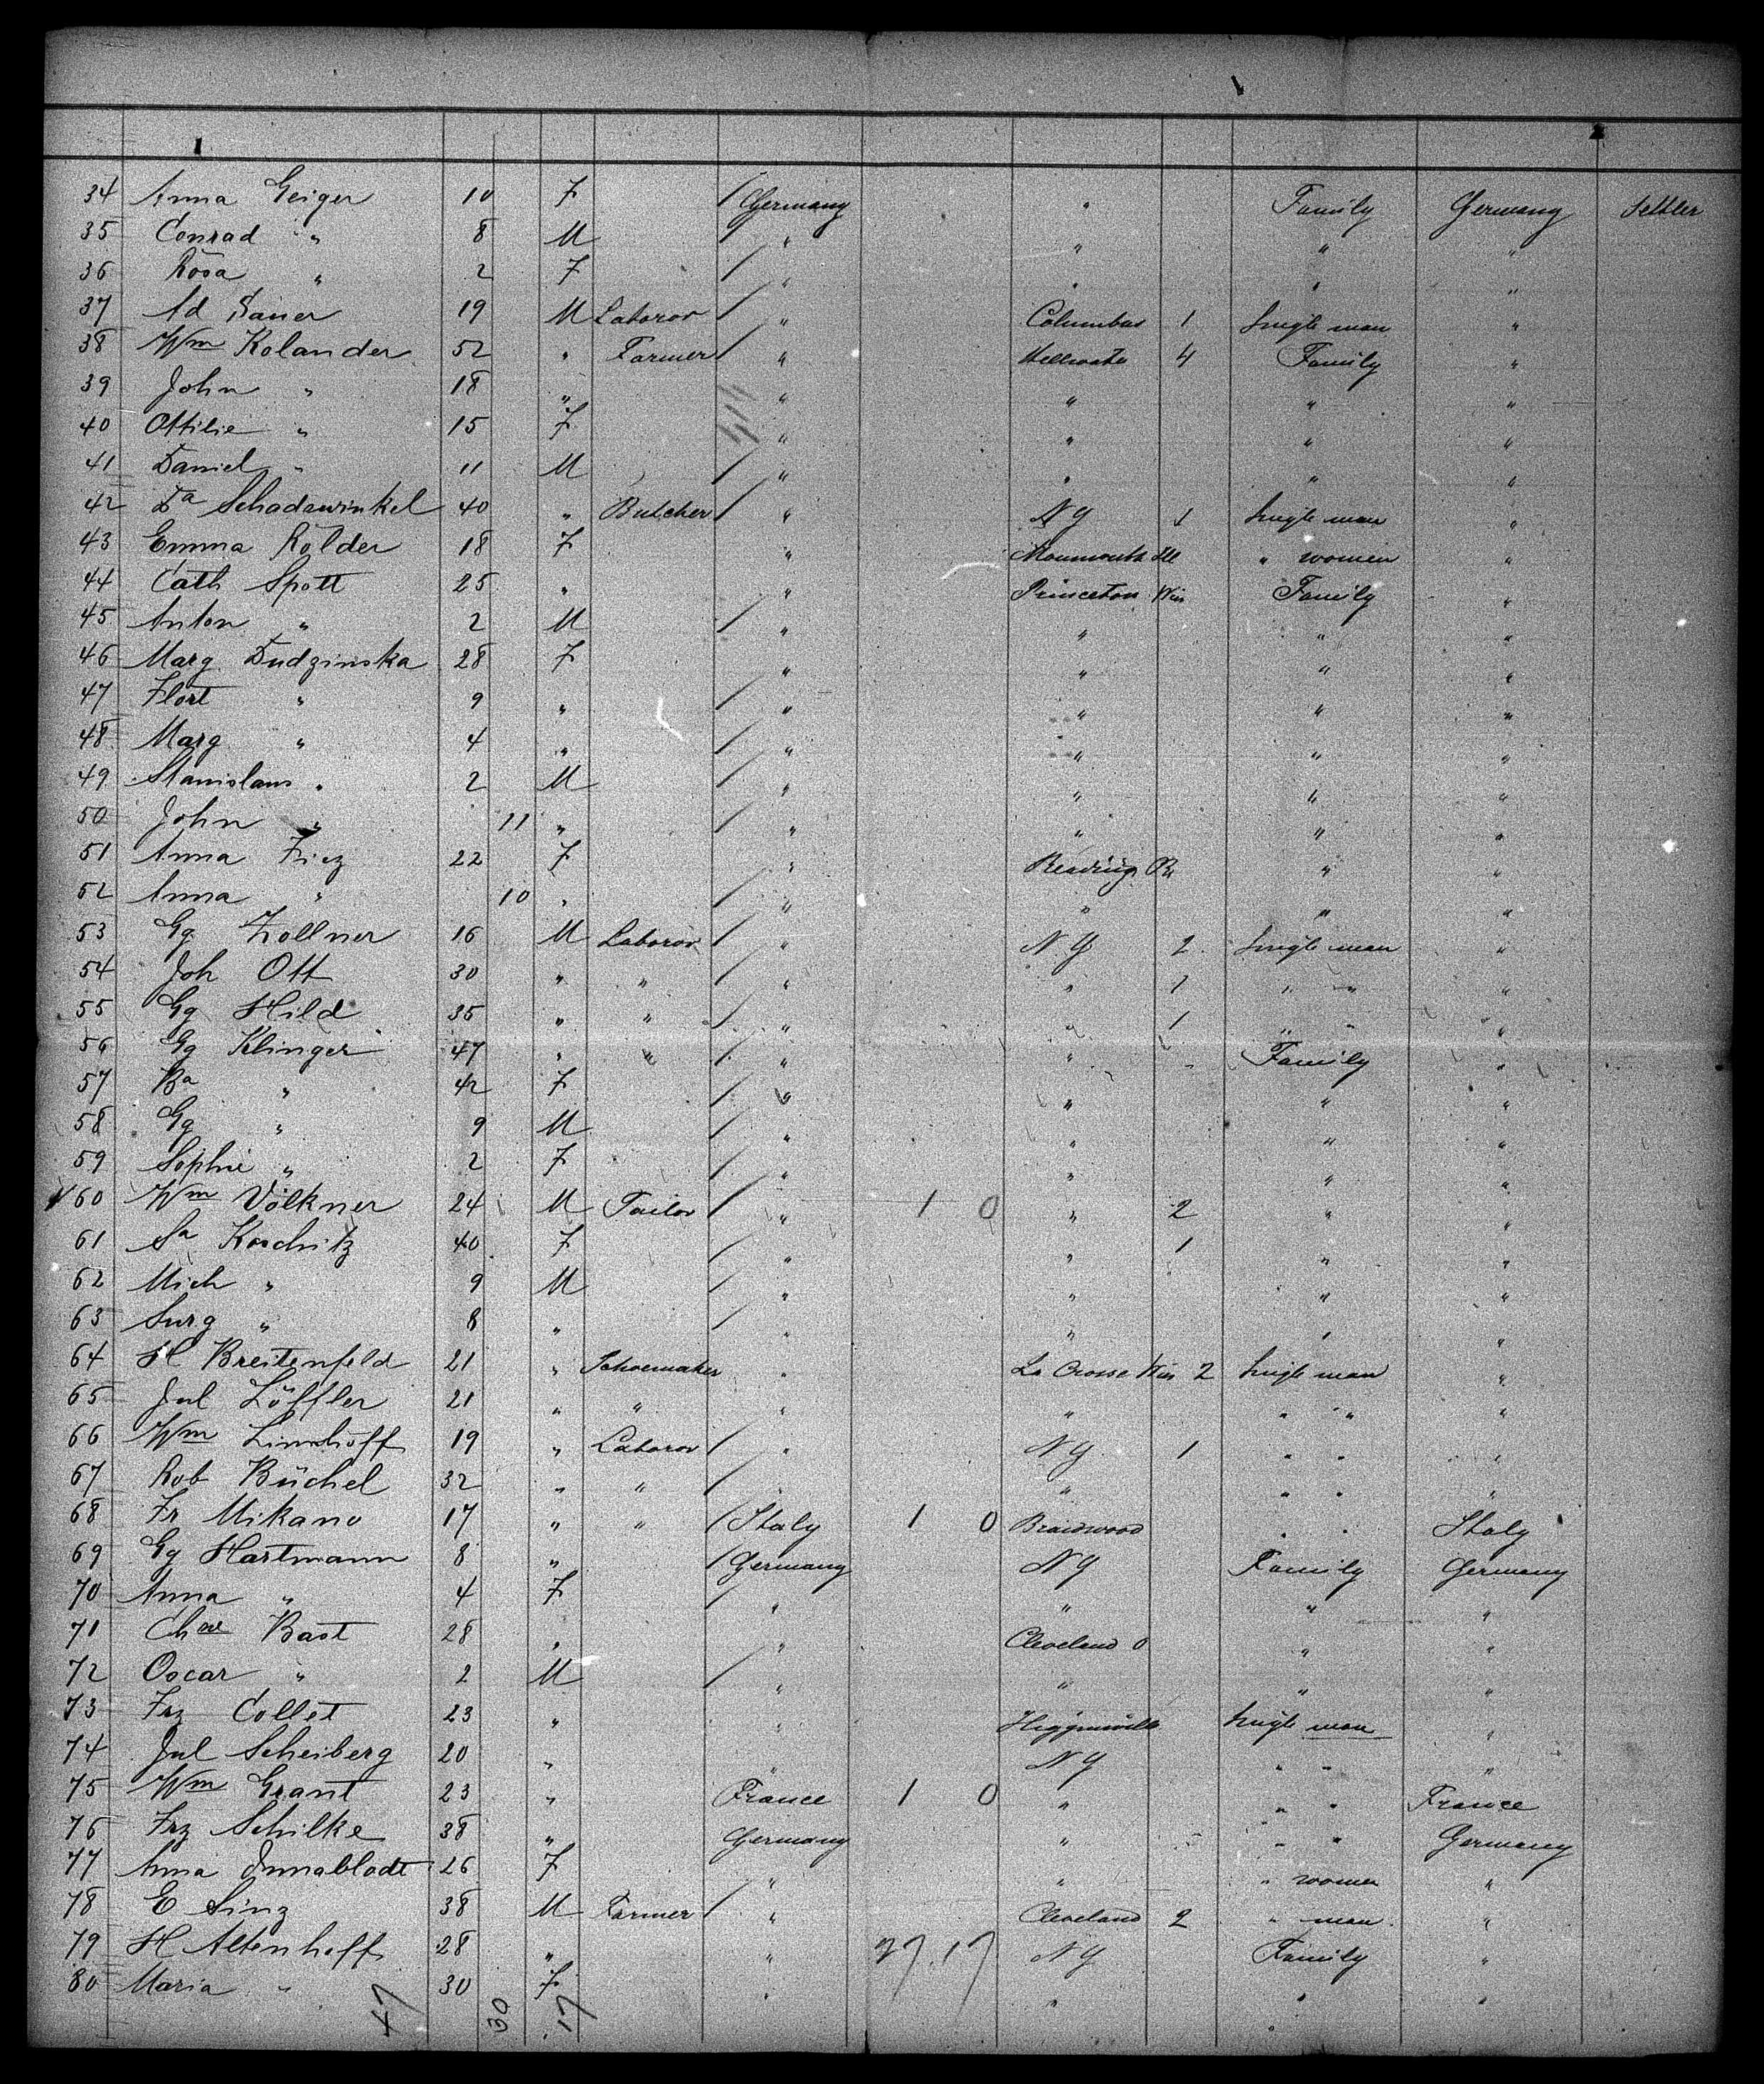 34 Anna Geiger 10 F / Germany " Family Germany Settler
35 Conrad " 8 M / " " " "
36 Rosa " 2 F / " " " "
37 Ad Sauer 19 M Laboror / " Columbus 1 Single man "
38 Wm Kolander 52 " Farmer / " 4 Family "
39 John " 18 " " " " "
40 Ottilie " 15 F " " " "
41 Daniel " 11 M / " " " "
42 Da Schadewinkel 40 " Butcher / " NY 1 Single man "
43 Emma Rölder 18 F " Monmouth Ill " women "
44 Cath Spott 25 " " Princeton Wis Family "
45 Anton " 2 M / " " " "
46 Marg Dudzinska 28 F / " " " "
47 Flort " 9 " / " " " "
48 Marg " 4 " / " " " "
49 Stanislaus " 2 M / " " " "
50 John " 11 " / " " " "
51 Anna Friez 22 F / " Reading Pa " "
52 Anna " 10 " / " " " "
53 Gg Zollner 16 M Laboror / " NY 2 Single man "
54 Joh Ott 30 " " / " " 1 " " "
55 Gg Hild 35 " " / " " 1 " " "
56 Gg Klinger 47 " " / " " " Family "
57 Ba " 42 F / " " " "
58 Gg " 9 M / " " " "
59 Sophie " 2 F / " " " "
60 Wm Völkner 24 M Tailor / " 1 0 " 2 " "
61 Sa Koschitz 40 F / " " 1 " "
62 Mich " 9 M / " " " "
63 Surg " 8 " / " " " "
64 H Breitenfeld 21 " Schoemaker " La Crosse Wis 2 Single man "
65 Jul Löffler 21 " " " " " " "
66 Wm Limshoff 19 " Laboror / " NY 1 " " "
67 Rob Büchel 32 " " / " " " " "
68 Fr Mikano 17 " " / Italy 1 0 Braidwood " " Italy
69 Gg Hartmann 8 " / Germany NY Family Germany
70 Anna " 4 F / " " " "
71 Chae Bast 28 " / " Cleveland O " "
72 Oscar " 2 M / " " " "
73 Frz Collet 23 " " Higginsville Single man "
74 Jul Scheiberg 20 " " NY " " "
75 Wm Grant 23 " France 1 0 " " " France
76 Frz Schilke 38 " Germany " " " Germany
77 Anna Innablodt 26 F " " " women "
78 E Sinz 38 M Farmer / " Cleveland 2 " man "
79 H Altenhoff 28 " " 27.17 NY Family "
80 Maria " 30 F " " " "
47 30 17